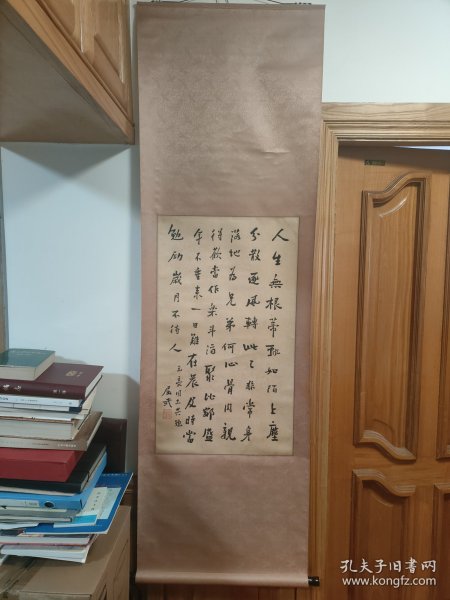 人生無根蒂飄如陌上塵
分散逐風轉此已非常身
落地為兄弟何必骨肉親
得歡當作樂斗酒聚比鄰盛
年不重來一日難在晨及時當
勉勵歲月不待人
同志共勉
屈武
孔夫子旧书网
www.kongfz.com